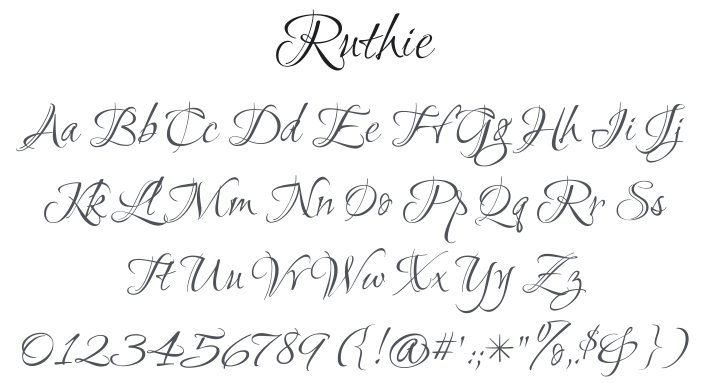 Ruthie
Aa Bb Cc Dd Ee Ff Gg Hh Ii Jj
Kk Ll Mm Nn Oo Pp Qq Rr Ss
Tt Uu Vv Ww Xx Yy Zz
0123456789 ({!@#'.:;*"%,.$&})